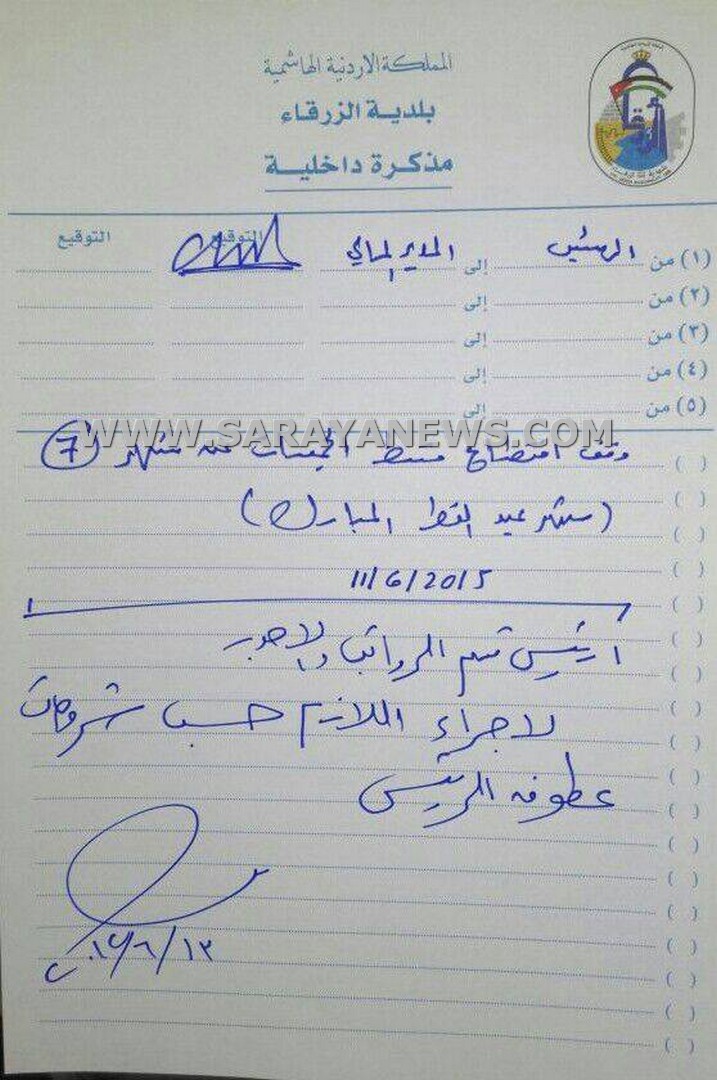 المملكة الاردنية الهاشمية
بلدية الزرقاء
مذكرة داخلية
التوقيع التوقيع
(١) من الرئيس إلى المدير المالي
(٢) من إلى
(٣) من إلى
(٤) من إلى
(٥) من إلى
WWW.SARAYANEWS.COM
وقف اقتطاع قسط الجمعيات عن شهر 7
(شهر عيد الفطر المبارك)
11/6/2015
رئيس قسم الرواتب والاجور
لاجراء اللازم حسب شروحات
عطوفة الرئيس